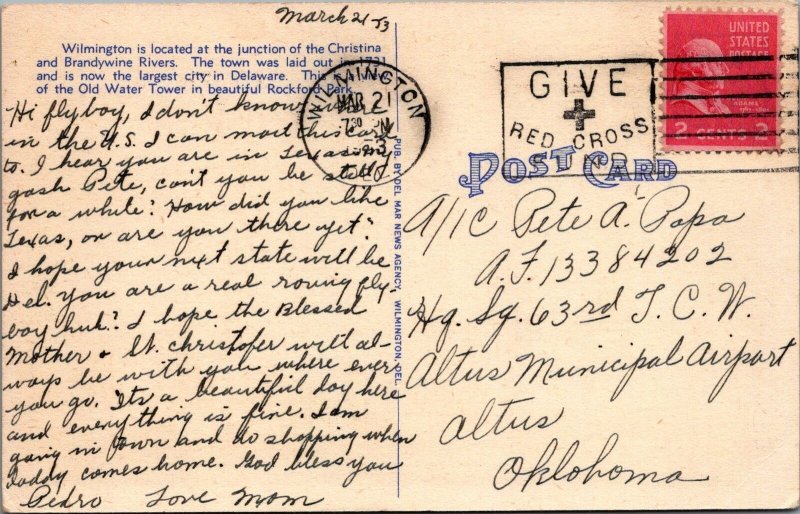 March 21, 53
Wilmington is located at the junction of the Christina
and Brandywine Rivers. The town was laid out in 1731
and is now the largest city in Delaware. This is
of the Old Water Tower in beautiful Rockford Park.
Hi flyboy, I don't know
in the U.S. I can mail this card
to. I hear you are in Texas my
gosh Pete, can't you be still
for a while? How did you like
Texas, or are you there yet?
I hope your next state will be
Del. You are a real roving fly-
boy huh? I hope the Blessed
Mother & St. Christofer will al-
ways be with you where ever
you go. Its a beautiful day here
and everything is fine. I am
going in town and do shopping when
daddy comes home. God bless you
Pedro Love Mom
WILMINGTON
MAR 21
7 30 PM
DEL.
PUB. BY DEL MAR NEWS AGENCY, WILMINGTON, DEL.
GIVE
RED CROSS
UNITED
STATES
POSTAGE
2 CENTS 2
POST CARD
A/1C Pete A. Papa
A.F. 13384202
Hq. Sq. 63rd T.C.W.
Altus Municipal Airport
Altus
Oklohoma